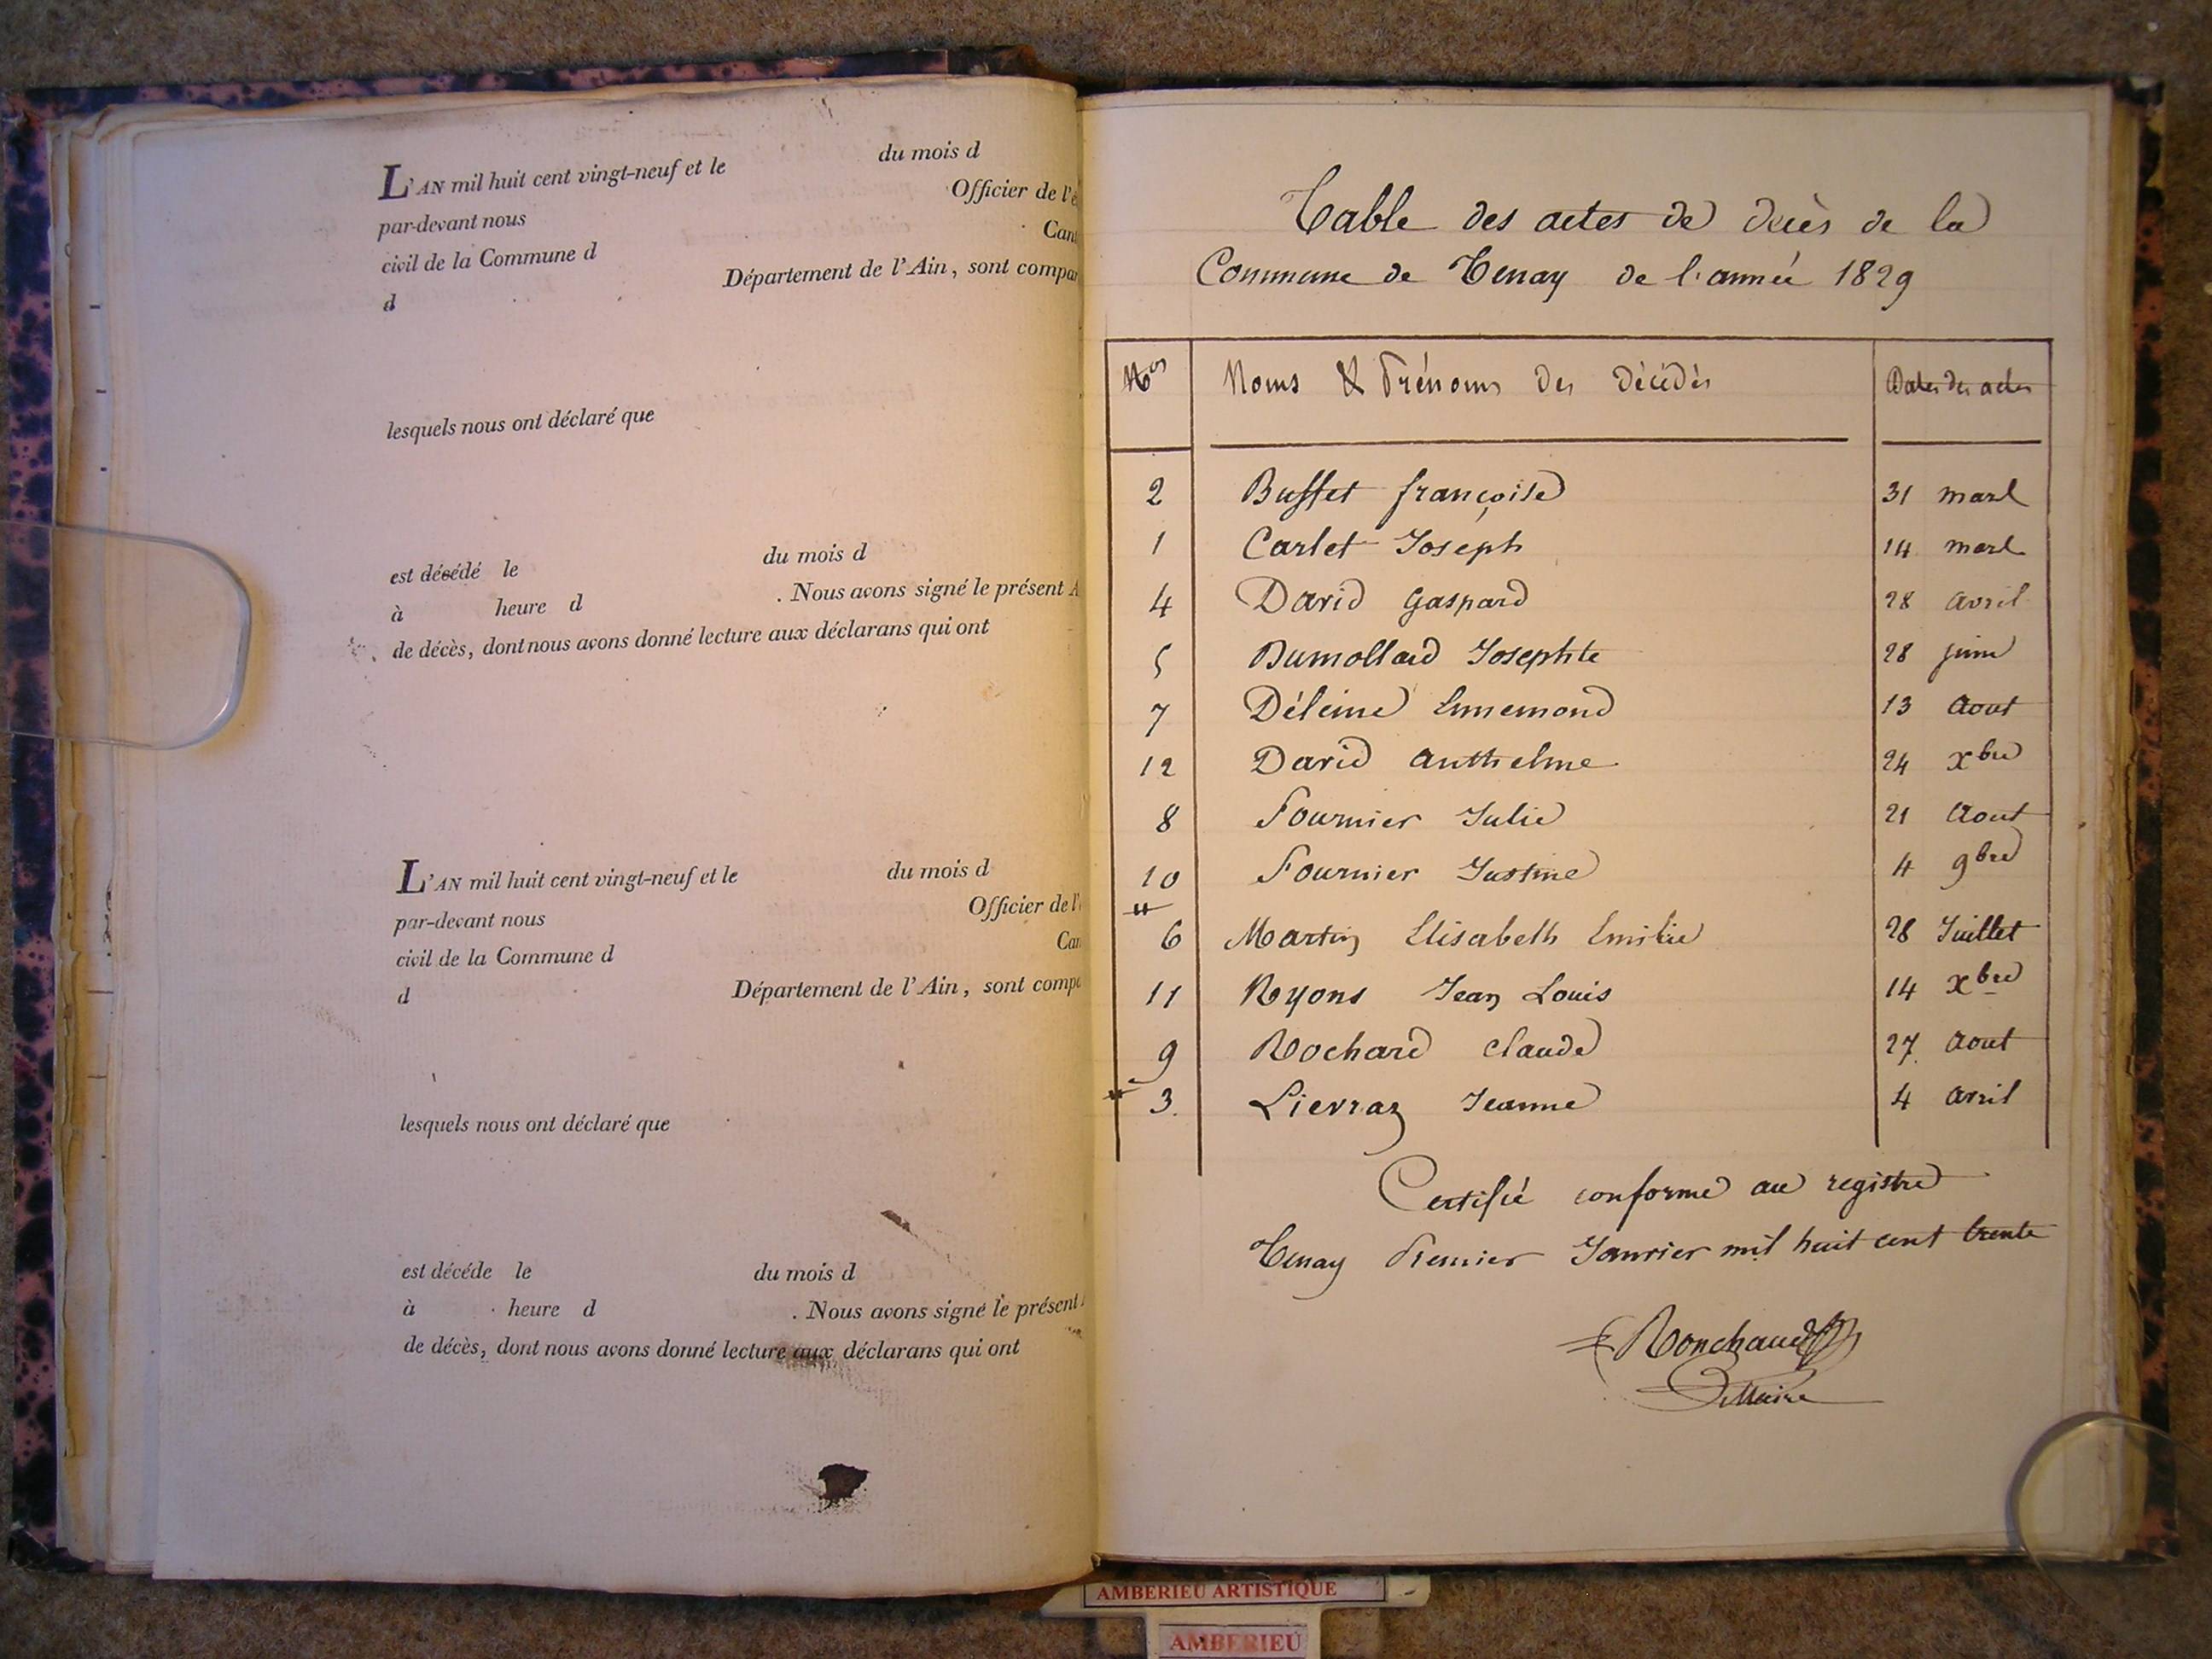 L'AN mil huit cent vingt-neuf et le du mois d
par-devant nous Officier de l'é
civil de la Commune d Cant
d Département de l'Ain, sont compar
lesquels nous ont déclaré que
est décédé le du mois d
à heure d . Nous avons signé le présent A
de décès, dont nous avons donné lecture aux déclarans qui ont
L'AN mil huit cent vingt-neuf et le du mois d
par-devant nous Officier de l'
civil de la Commune d Can
d Département de l'Ain, sont compa
lesquels nous ont déclaré que
est décéde le du mois d
à heure d . Nous avons signé le présent
de décès, dont nous avons donné lecture aux déclarans qui ont
Table des actes de decès de la
Commune de Tenay de l'année 1829
Nos Noms & Prénoms des décédés Dates des actes
2 Buffet françoise 31 mars
1 Carlet Joseph 14 mars
4 David Gaspard 28 avril
5 Dumollard Josephte 28 juin
7 Déleine Ennemond 13 Aout
12 David Anthelme 24 xbre
8 Fournier Julie 21 Aout
10 Fournier Justine 4 9bre
6 Martin Elisabeth Emilie 28 Juillet
11 Ryons Jean Louis 14 xbre
9 Rochard Claude 27 Aout
3 Lievraz Jeanne 4 avril
Certifié conforme au registre
Tenay Premier Janvier mil huit cent trente
Ronchaud
Maire
AMBERIEU ARTISTIQUE
AMBERIEU